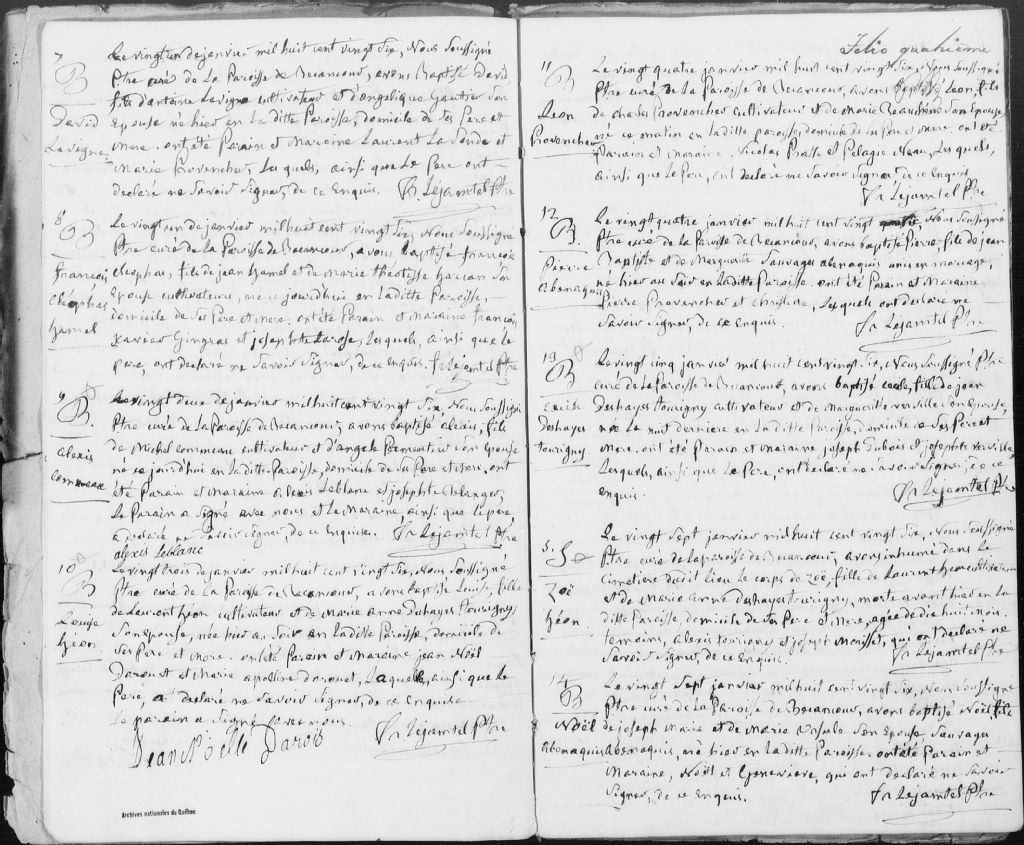 7
B
David
Lavigne
Le vingt un de janvier mil huit cent vingt Six, Nous Soussigné
Ptre curé de La Paroisse de Becancour, avons Baptisé David,
fils d'antoine Lavigne cultivateur et d'angelique Gautier Son
Epouse né hier en La ditte Paroisse, domicile de Ses Pere et
Mere. ont été Parain et Maraine Laurent La Londe et
Marie Provencher, Lesquels, ainsi que Le Pere ont
declaré ne Savoir Signer, de ce Enquis. Fr Lejamtel Ptre
8
B
françois
cleophas
hamel
Le vingt un de janvier mil huit cent vingt Six, Nous Soussigné
Ptre curé de la Paroisse de Becancour, avons baptisé françois
cleophas, fils de jean hamel et de Marie theotisse Son
Epouse cultivateurs, né ce jourd'hui en Laditte Paroisse,
domicile de Ses Pere et Mere. ont été Parain et Maraine françois
xavier Gingras et josephte Larose, Lesquels, ainsi que Le
pere, ont declaré ne Savoir Signer, de ce enquis. fr Lejamtel Ptre
9
B.
Alexis
Commeau
Le vingt deux de janvier mil huit cent vingt Six, Nous Soussigné
Ptre curé de La Paroisse de Becancour, avons baptisé alexis, fils
de Michel commeau cultivateur et d'angele Son Epouse
né ce jourd'hui en Laditte Paroisse, domicile de Ses Pere et Mere, ont
été Parain et Maraine alexis Leblanc et josephte Belanger,
Le Parain a Signé avec nous et La Maraine, ainsi que le pere
a declaré ne Savoir Signer, de ce Enquise. Fr Lejamtel Ptre
alexis Leblanc
10
B
Louise
héon.
Le vingt trois de janvier mil huit cent vingt Six, Nous Soussigné
Ptre curé de La Paroisse de Becancour, avons baptisé Louise, fille
de Laurent héon cultivateur et de Marie anne duhays tourigny
Son epouse, née hier au Soir en Laditte Paroisse, domicile de
Ses Pere et Mere. ont été Parain et Maraine jean Noël
Darouet et Marie apolline darouet, Laquelle, ainsi que Le
Pere, a declaré ne Savoir Signer, de ce Enquise.
Le parain a Signé avec nous. Fr Lejamtel Ptre
Jean Noelle Darois
Archives nationales du Québec
Folio quatrième
11
B
Leon
Provencher
Le vingt quatre janvier mil huit cent vingt Six, Nous Soussigné
Ptre curé de La Paroisse de Becancour, avons Baptisé Léon, fils
de charles Provencher cultivateur et de Marie Son Epouse
né ce matin en Laditte paroisse, domicile de Ses Pere et Mere, ont été
Parain et Maraine. Nicolas et Pelagie Neau, Lesquels,
ainsi que Le Pere, ont declaré ne Savoir Signer, de ce enquis
Fr Lejamtel Ptre
12
B.
Pierre
Abenaquis
Le vingt quatre janvier mil huit cent vingt Nous Soussigné
Ptre curé de La Paroisse de Becancour, avons baptisé Pierre, fils de jean
Baptiste et de Marguerite Sauvages abenaquis unis en mariage,
né hier au Soir en Laditte Paroisse. ont été Parain et Maraine
Pierre Provencher et christine, Lesquels ont declaré ne
Savoir Signer, de ce Enquis. Fr Lejamtel Ptre
13
B
cecile
deshayes
tourigny
Le vingt cinq janvier mil huit cent vingt Six, Nous Soussigné Ptre
curé de La Paroisse de Becancour, avons baptisé cecile, fille de jean
deshayes tourigny cultivateur et de Marguerite verville Son Epouse,
née La nuit derniere en La ditte Paroisse, domicile de Ses Pere et
Mere. ont été Parain et Maraine joseph Dubois et josephte verville
Lesquels, ainsi que Le Pere, ont declaré ne Savoir Signer, de ce
enquis. Fr Lejamtel Ptre
5. S
Zoë
héon.
Le vingt Sept janvier mil huit cent vingt Six, Nous Soussigné
Ptre curé de La paroisse de Becancour, avons inhumé dans Le
Cimetiere dudit Lieu Le corps de Zoë, fille de Laurent heon cultivateur
et de Marie Anne duhays tourigny, morte avant hier en La
ditte Paroisse, domicile de Ses Pere et Mere, agée de dix huit mois.
temoins, alexis tourigny et joseph qui ont declaré ne
Savoir Signer, de ce Enquis. Fr Lejamtel Ptre
14
B
Noël
Abenaquis
Le vingt Sept janvier mil huit cent vingt Six, Nous Soussigné
Ptre curé de La Paroisse de Becancour, avons baptisé Noël, fils
de joseph Marie et de Marie Ursule Son Epouse Sauvages
Abenaquis, né hier en Laditte Paroisse. ont été Parain et
Maraine, Noël et Genevieve, qui ont declaré ne Savoir
Signer, de ce Enquis. Fr Lejamtel Ptre